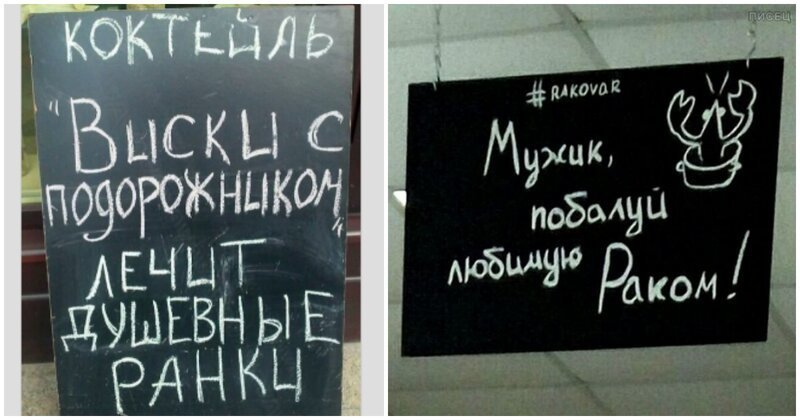 КОКТЕЙЛЬ
"Виски с
подорожником"
ЛЕЧИТ
ДУШЕВНЫЕ
РАНКИ
ПИСЕЦ
#RAKOVAR
Мужик,
побалуй
любимую
Раком!